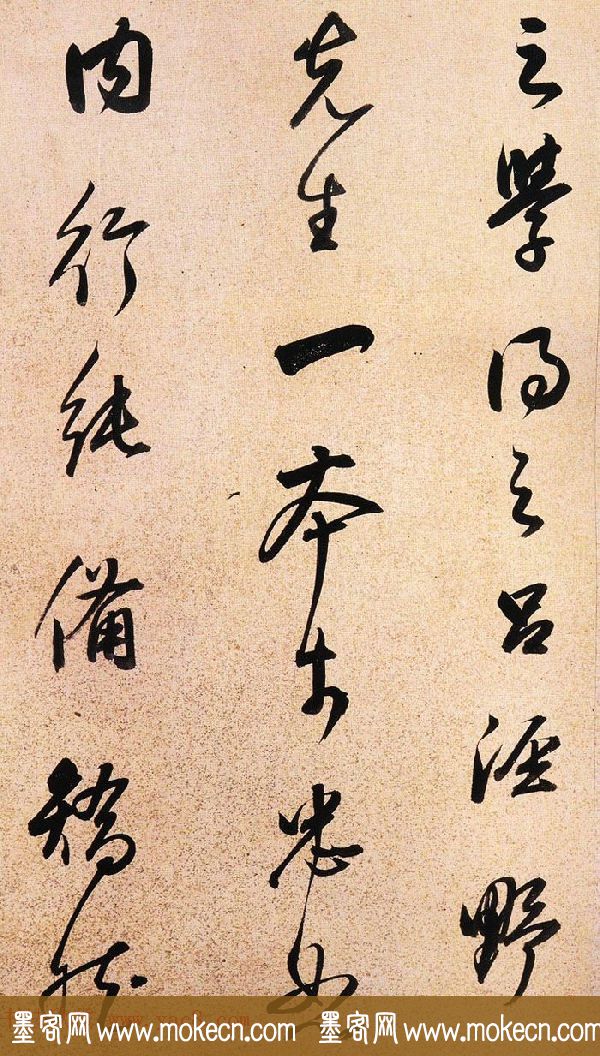 之學得之呂涇野
先生一本於忠恕
內行純備矯然
墨客网 www.mokecn.com 墨客网 www.mokecn.com